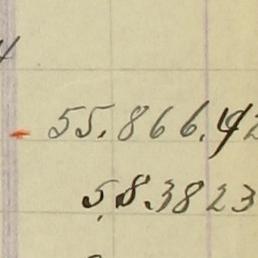 55.866.42
58.3823